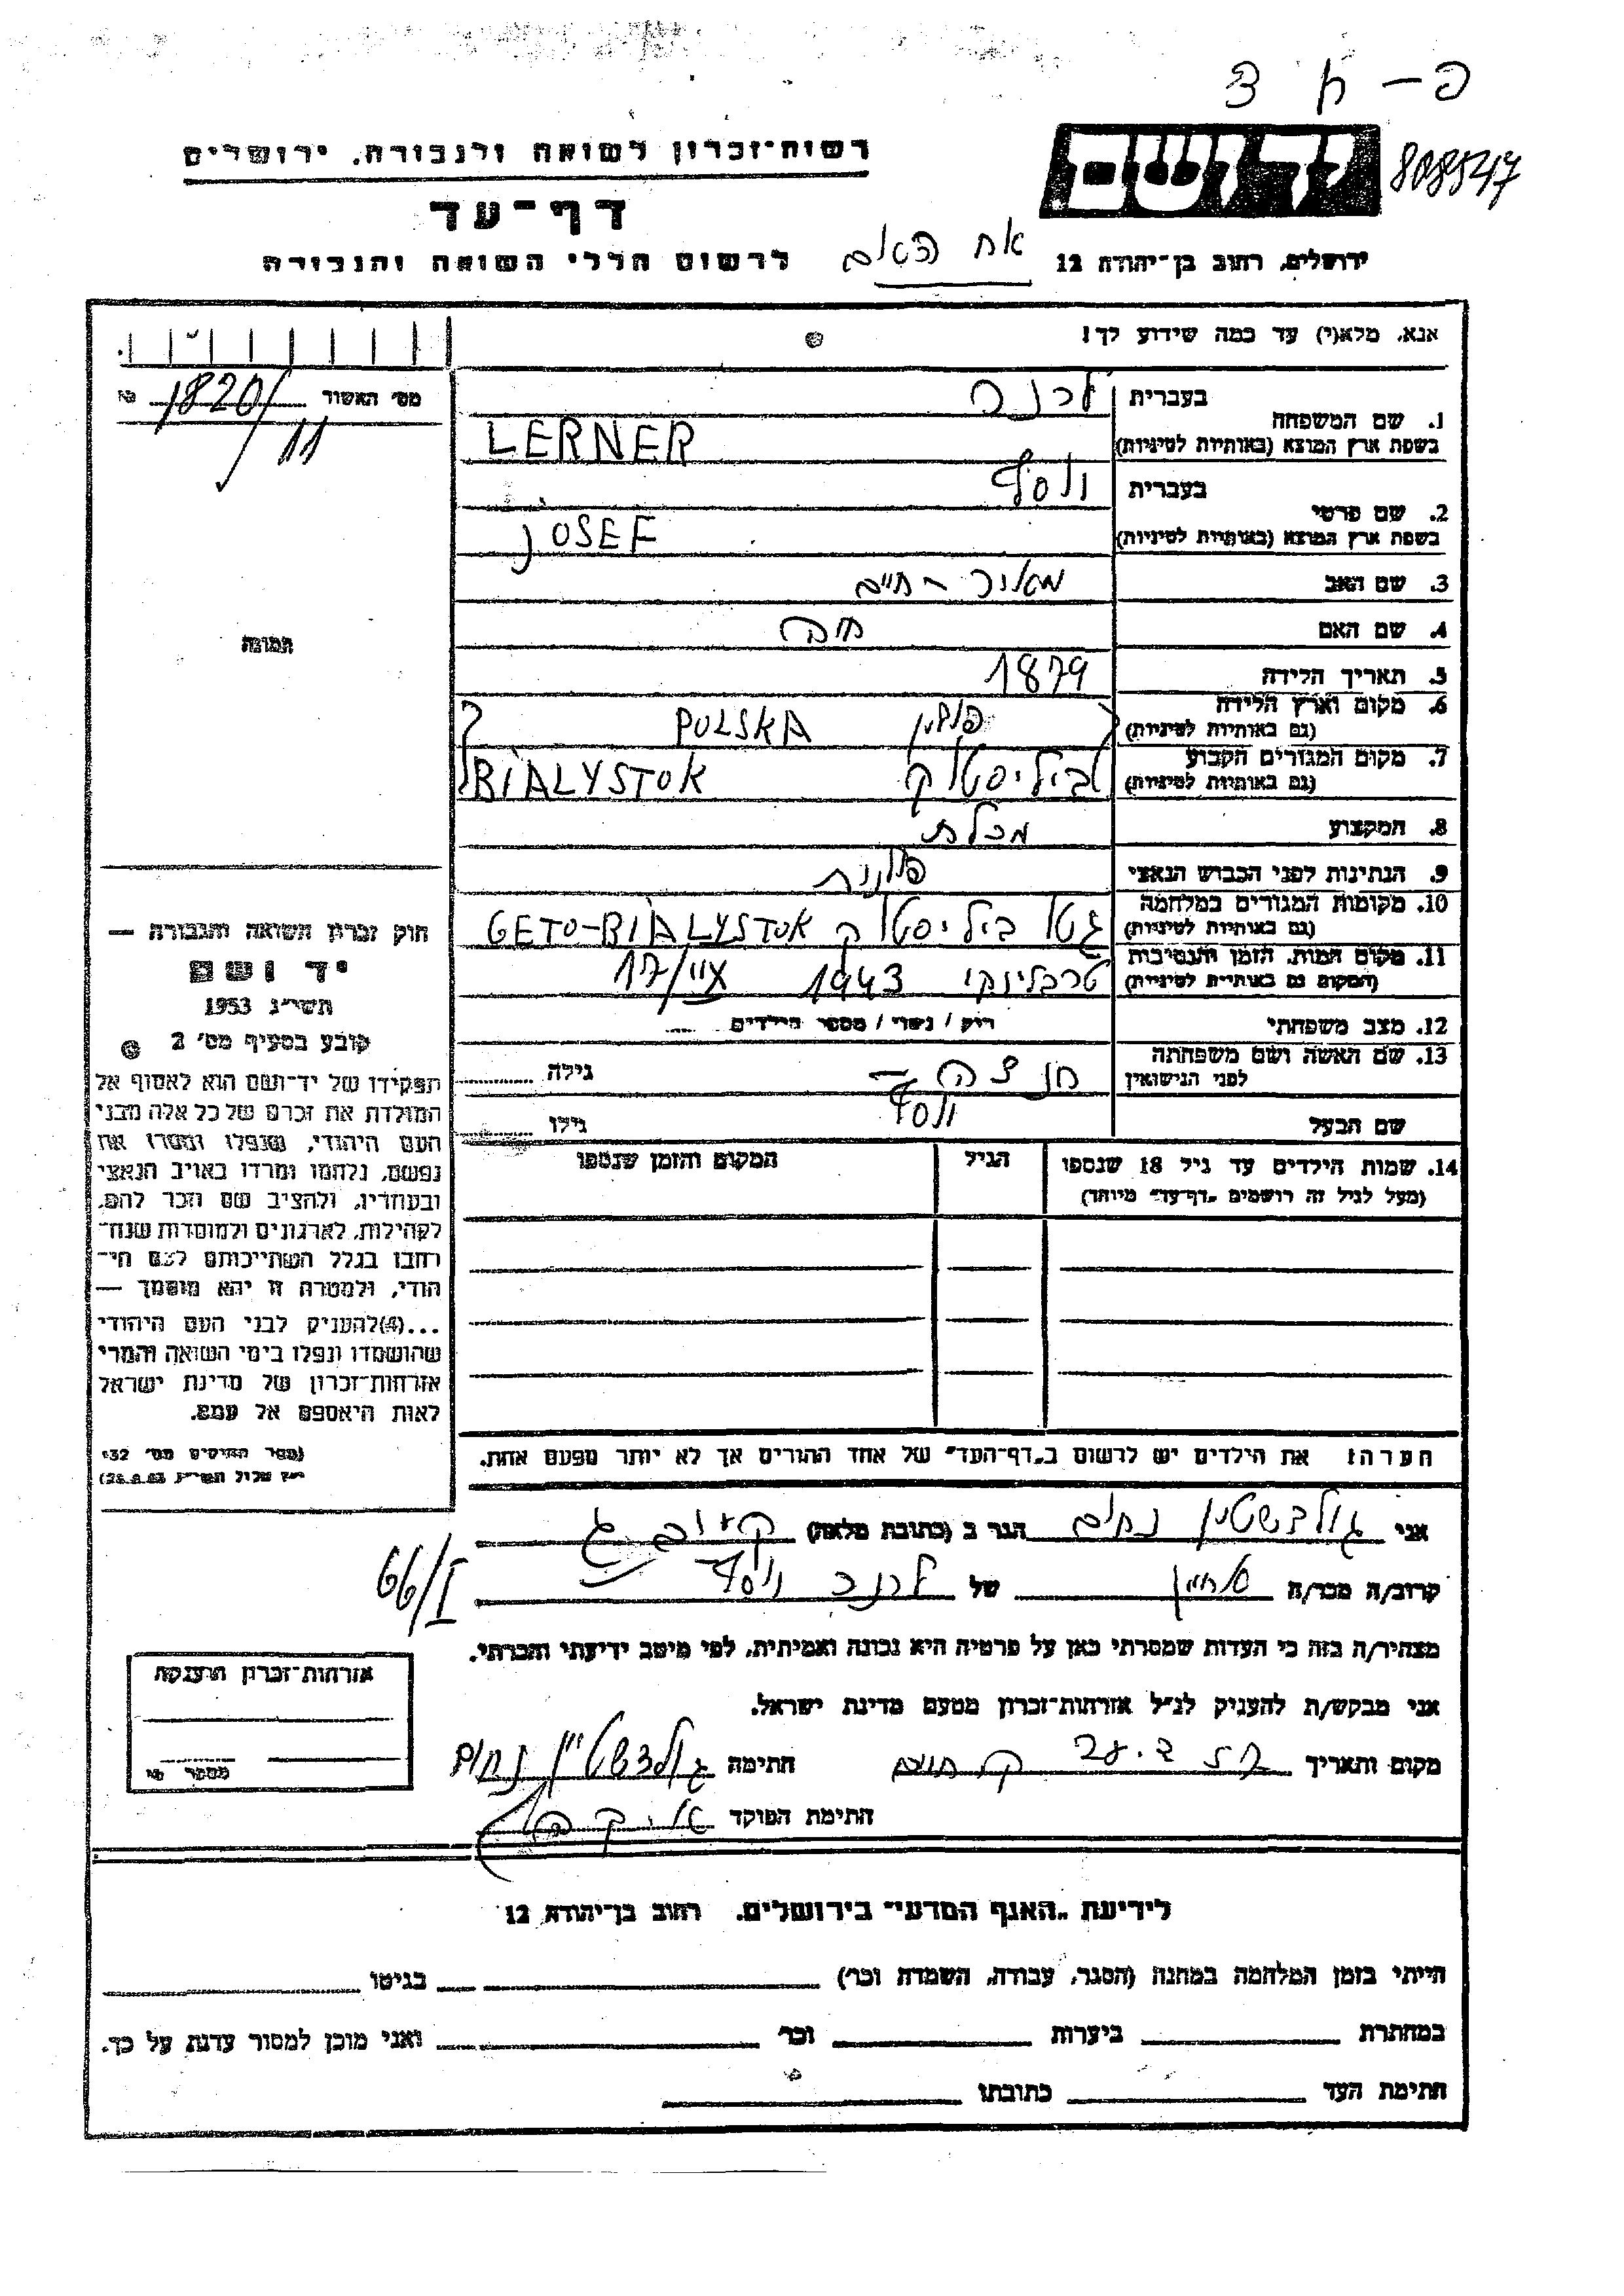 פ - ח צ
רשות־זכרון לשואה ולגבורה, ירושלים
יד ושם
8089547
דף־עד
אח האם
ירושלים, רחוב בן־יהודה 12
לרשום חללי השואה והגבורה
אנא, מלא(י) עד כמה שידוע לך!
מס' האשור 1820/11 №
1. שם המשפחה
בעברית לרנר
בשפת ארץ המוצא (באותיות לטיניות) LERNER
2. שם פרטי
בעברית יוסף
בשפת ארץ המוצא (באותיות לטיניות) JOSEF
3. שם האב מאיר - חיים
4. שם האם חיה
תמונה
5. תאריך הלידה 1879
6. מקום וארץ הלידה
(גם באותיות לטיניות) פולין POLSKA
7. מקום המגורים הקבוע
(גם באותיות לטיניות) ביליסטוק BIALYSTOK
8. המקצוע מכלת
9. הנתינות לפני הכבוש הנאצי פולנית
10. מקומות המגורים במלחמה
(גם באותיות לטיניות) גטו ביליסטוק GETO-BIALYSTOK
11. מקום המות, הזמן והנסיבות
(המקום גם באותיות לטיניות) טרבלינקי 1943
12. מצב משפחתי רווק / נשוי / מספר הילדים
13. שם האשה ושם משפחתה
לפני הנישואין גילה
שם הבעל יוסף גילו
14. שמות הילדים עד גיל 18 שנספו
(מעל לגיל זה רושמים "דף־עד" מיוחד)
הגיל
המקום והזמן שנספו
חוק זכרון השואה והגבורה —
יד ושם
תשי״ג 1953
קובע בסעיף מס' 2
תפקידו של יד־ושם הוא לאסוף אל
המולדת את זכרם של כל אלה מבני
העם היהודי, שנפלו ומסרו את
נפשם, נלחמו ומרדו באויב הנאצי
ובעוזריו, ולהציב שם וזכר להם,
לקהילות, לארגונים ולמוסדות שנח־
רבו בגלל השתייכותם לעם הי־
הודי, ולמטרה זו יהא מוסמך —
...(4)להעניק לבני העם היהודי
שהושמדו ונפלו בימי השואה והמרי
אזרחות־זכרון של מדינת ישראל
לאות היאספם אל עמם.
(ספר החוקים מס' 132
הערה! את הילדים יש לרשום ב„דף־העד״ של אחד ההורים אך לא יותר מפעם אחת.
אני גולדשטיין נחום הגר ב (כתובת מלאה)
קרוב/ה מכר/ה אחיין של לרנר יוסף
66/I
מצהיר/ה בזה כי העדות שמסרתי כאן על פרטיה היא נכונה ואמיתית, לפי מיטב ידיעתי והכרתי.
אני מבקש/ת להעניק לנ״ל אזרחות־זכרון מטעם מדינת ישראל.
אזרחות־זכרון הוענקה
מספר №
מקום ותאריך חתימה גולדשטיין נחום
חתימת הפוקד
לידיעת „האגף המדעי״ בירושלים, רחוב בן־יהודה 12
הייתי בזמן המלחמה במחנה (הסגר, עבודה, השמדה וכו') בגיטו
במחתרת ביערות וכו' ואני מוכן למסור עדות על כך.
חתימת העד כתובתו